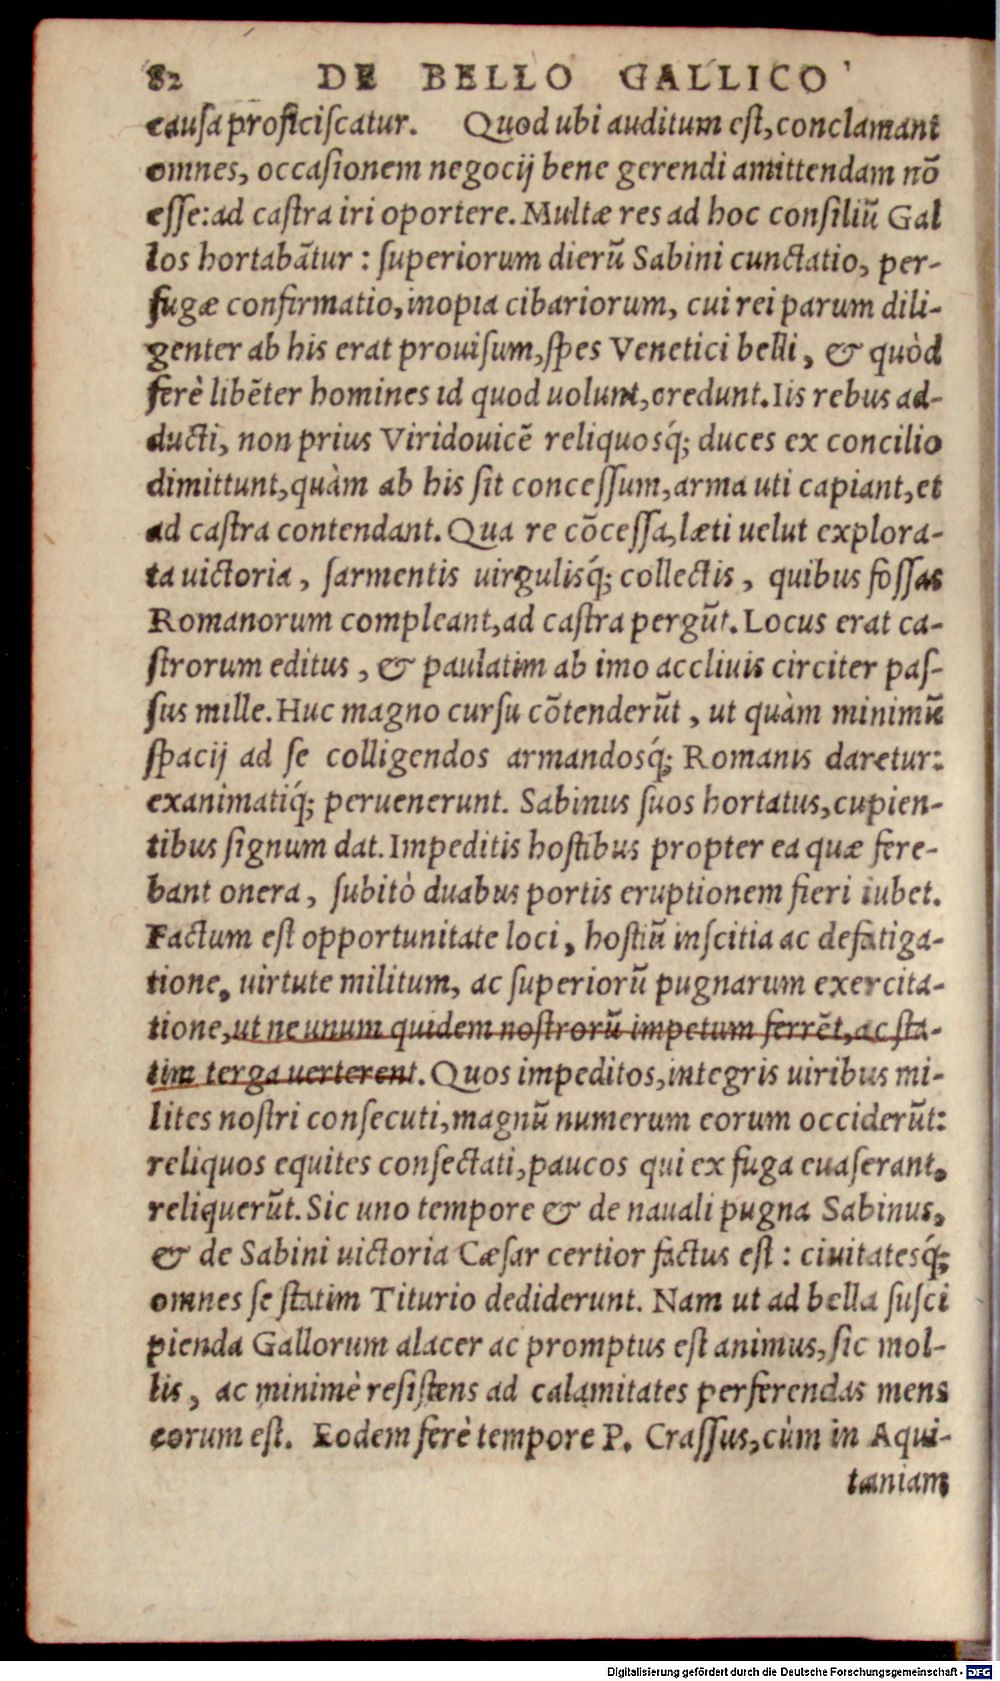 82 DE BELLO GALLICO
cauſa proficiſcatur. Quod ubi auditum eſt, conclamant
omnes, occaſionem negocij bene gerendi amittendam nō
eſſe: ad caſtra iri oportere. Multæ res ad hoc conſiliū Gal
los hortabātur : ſuperiorum dierū Sabini cunctatio, per-
fugæ confirmatio, inopia cibariorum, cui rei parum dili-
genter ab his erat prouiſum, ſpes Venetici belli, & quòd
ferè libēter homines id quod uolunt, credunt. Iis rebus ad-
ducti, non prius Viridouicē reliquosq́; duces ex concilio
dimittunt, quàm ab his ſit conceſſum, arma uti capiant, et
ad caſtra contendant. Qua re cōceſſa, læti uelut explora-
ta uictoria, ſarmentis uirgulisq́; collectis, quibus foſſas
Romanorum compleant, ad caſtra pergūt. Locus erat ca-
ſtrorum editus, & paulatim ab imo accliuis circiter paſ-
ſus mille. Huc magno curſu cōtenderūt, ut quàm minimū
ſpacij ad ſe colligendos armandosq́; Romanis daretur:
exanimatiq́; peruenerunt. Sabinus ſuos hortatus, cupien-
tibus ſignum dat. Impeditis hoſtibus propter ea quæ fere-
bant onera, ſubitò duabus portis eruptionem fieri iubet.
Factum eſt opportunitate loci, hoſtiū inſcitia ac defatiga-
tione, uirtute militum, ac ſuperiorū pugnarum exercita-
tione, ut ne unum quidem noſtrorū impetum ferrēt, ac ſta-
tim terga uerterent. Quos impeditos, integris uiribus mi-
lites noſtri conſecuti, magnū numerum eorum occiderūt:
reliquos equites conſectati, paucos qui ex fuga euaſerant,
reliquerūt. Sic uno tempore & de nauali pugna Sabinus,
& de Sabini uictoria Cæſar certior factus eſt : ciuitatesq́;
omnes ſe ſtatim Titurio dediderunt. Nam ut ad bella ſuſci
pienda Gallorum alacer ac promptus eſt animus, ſic mol-
lis, ac minimè reſiſtens ad calamitates perferendas mens
eorum eſt. Eodem ferè tempore P. Craſſus, cùm in Aqui-
taniam
Digitalisierung gefördert durch die Deutsche Forschungsgemeinschaft - DFG